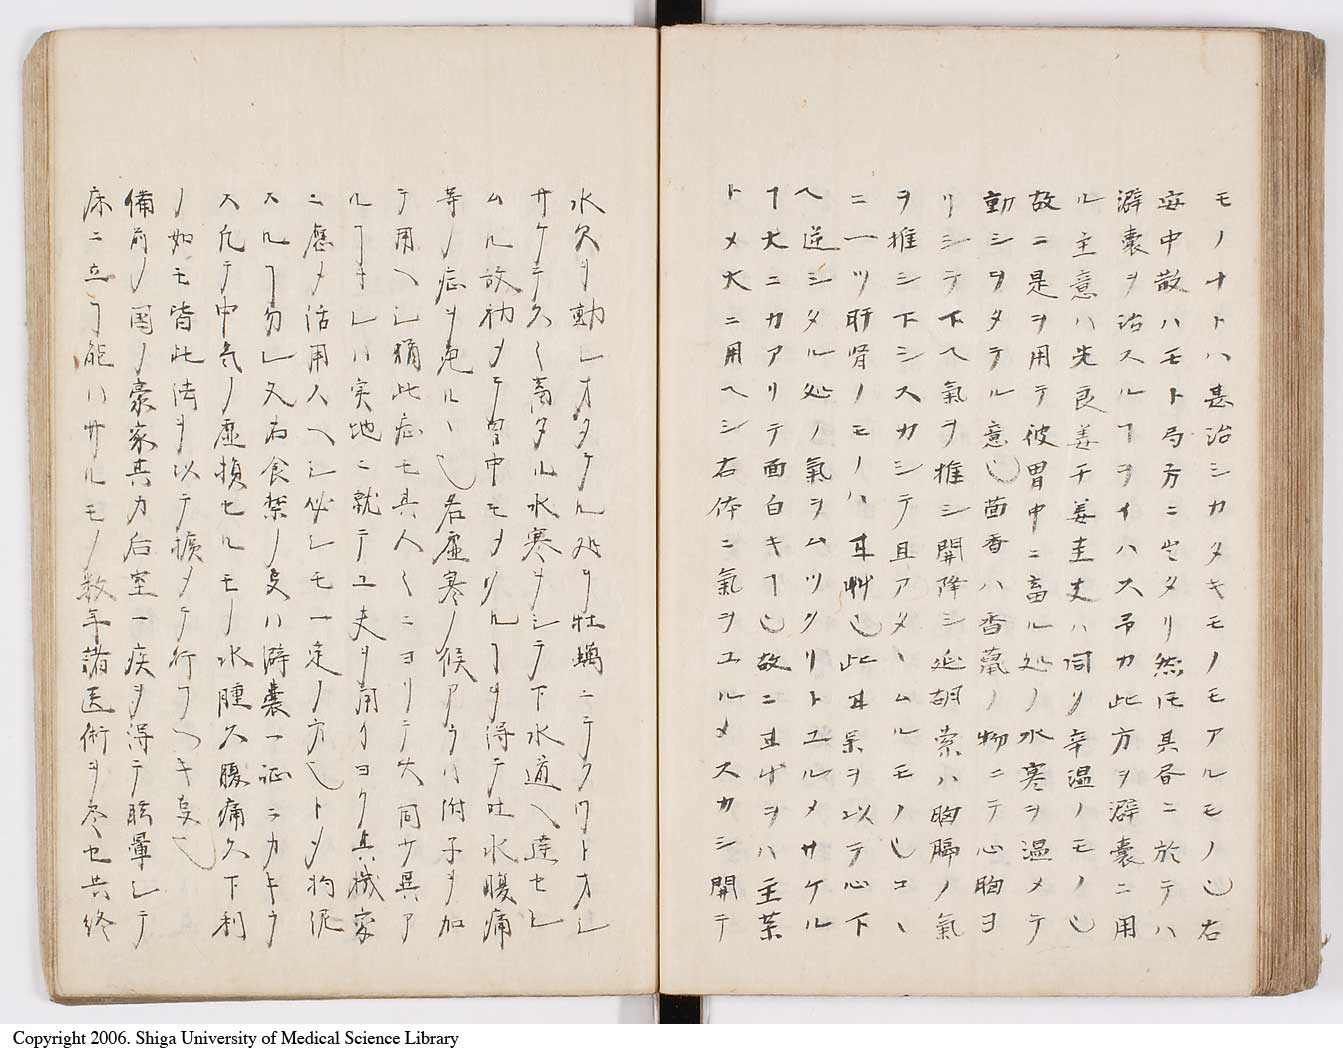 モノナトハ甚治シカタキモノモアルモノ也右
安中散ハモト局方ニ出タリ然𪜈其書ニ於テハ
澼囊ヲ治スルヿヲイハス吊カ此方ヲ澼囊ニ用
ル主意ハ先良姜干姜桂支ハ同ク辛温ノモノ也
故ニ是ヲ用テ彼胃中ニ畜ル処ノ水寒ヲ温メテ
動シヲタテル意也茴香ハ香薫ノ物ニテ心胸ヨ
リシテ下ヘ氣ヲ推シ開降シ延胡索ハ胸膈ノ氣
ヲ推シ下シスカシテ且アタヽムルモノ也コヽ
ニ一ツ肝腎ノモノハ甘艸也此甘味ヲ以テ心下
ヘ逆シタル処ノ氣ヲムツクリトユルメサケル
ヿ大ニカアリテ面白キヿ也故ニ甘艸ヲハ主薬
トメ大ニ用ヘシ右体ニ氣ヲユルメスカシ開テ
水欠ヲ動シオタケル処ヲ牡蠣ニテクワトオシ
サケテ久ク畜タル水寒ヲシテ下水道ヘ達セシ
ムル故初メテ胃中モメリルヿヲ得テ吐水腹痛
等ノ症ヲ免ルヽ也若虚寒ノ候アラハ附子ヲ加
テ用ヘシ猶此症モ其人々ニヨリテ大同少異ア
ルヿナレハ実地ニ就テ工夫ヲ用ヨク其機変
ニ應メ活用入ヘシ必シモ一定ノ方也トメ拘泥
スルヿ勿レ又右食禁ノ支ハ澼囊一証ニカキラ
ス凡テ中気ノ虚損セルモノ水腫久腹痛久下利
ノ如モ皆此法ヲ以テ擴メテ行フヘキ支也
備前ノ國ノ豪家其カ后室一疾ヲ得テ眩暈シテ
床ニ立ヿ能ハサルモノ数年諸医術ヲ尽セ共終
Copyright 2006. Shiga University of Medical Science Library